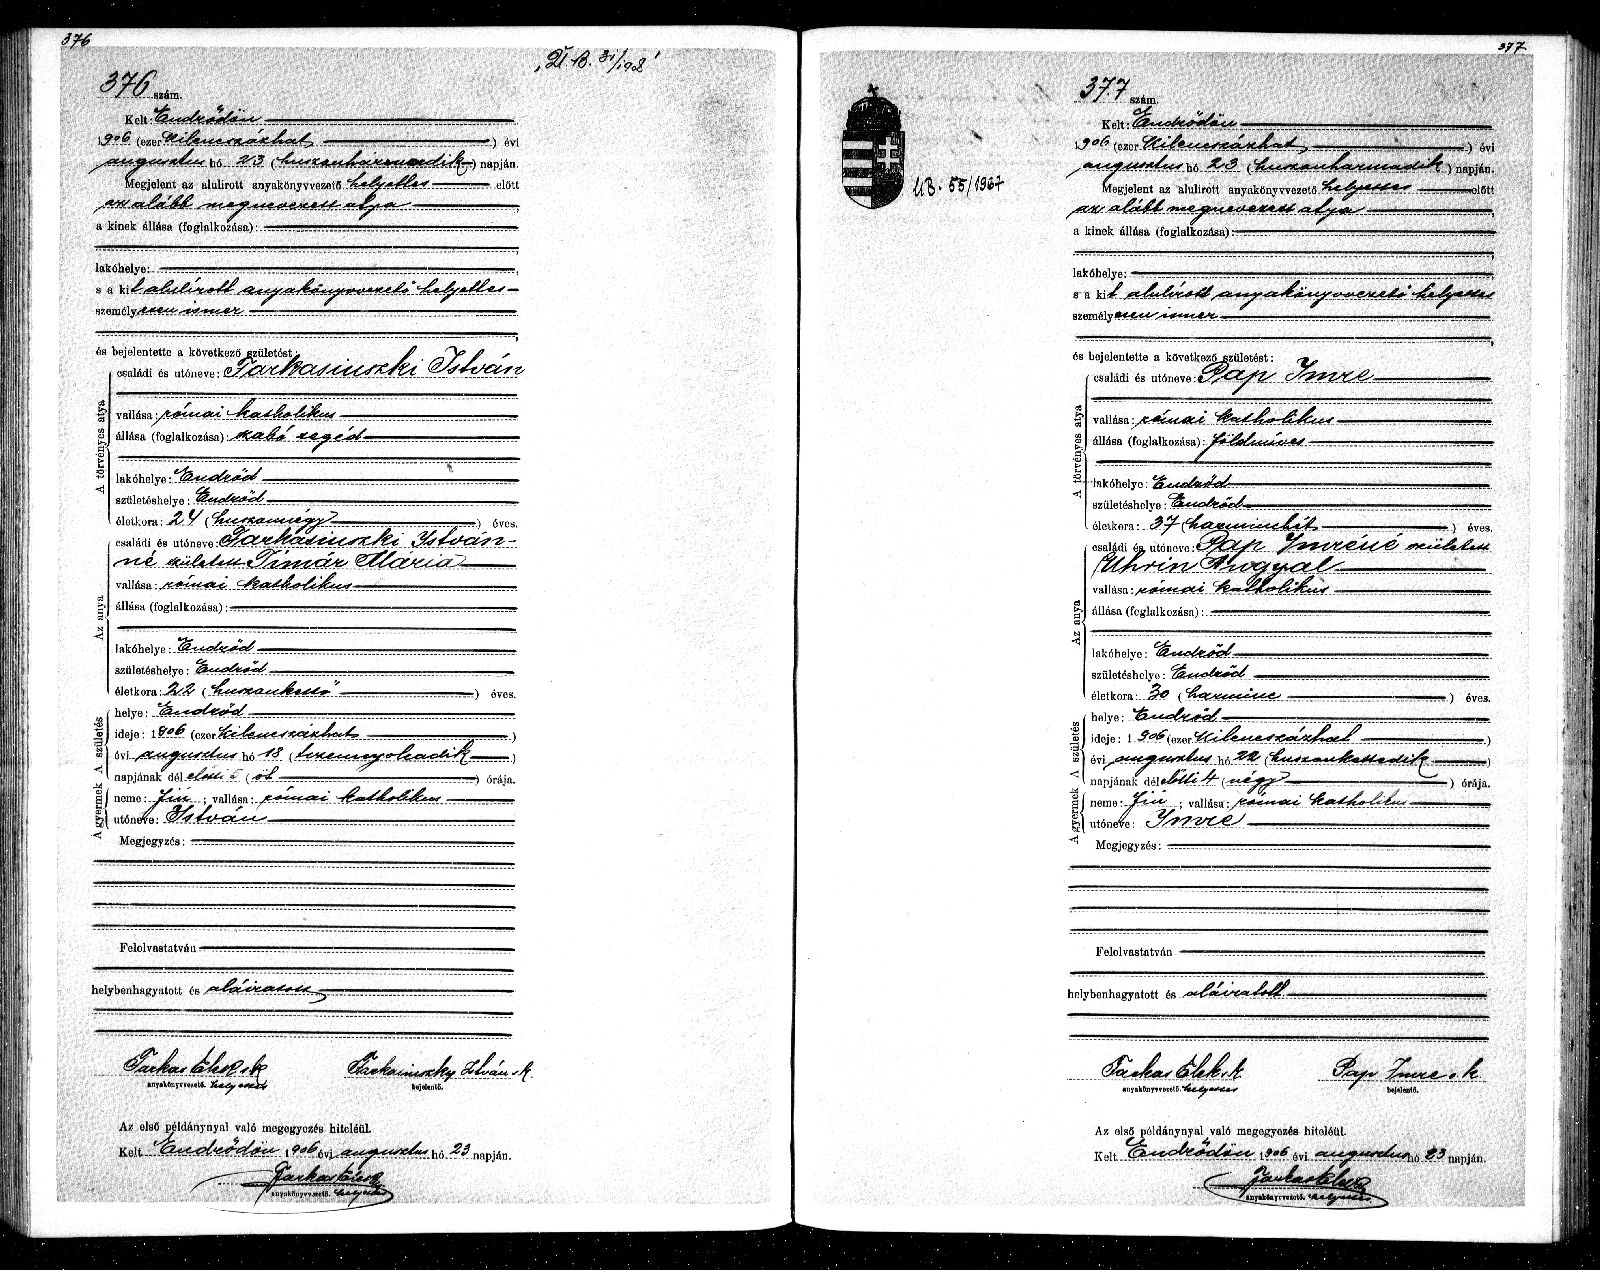 376
„U. B. 31/1908”
376 szám.
Kelt: Endrődön
1906 (ezer kilencszázhat) évi
augusztus hó 23 (huszonharmadik) napján.
Megjelent az alulirott anyakönyvvezető helyettes előtt
az alább megnevezett atya
a kinek állása (foglalkozása):
lakóhelye:
s a kit alulírott anyakönyvvezető helyettes
személyesen ismer
és bejelentette a következő születést:
A törvényes atya
családi és utóneve: Farkasinszki István
vallása: római katholikus
állása (foglalkozása): szabó segéd
lakóhelye: Endrőd
születéshelye: Endrőd
életkora: 24 (huszonnégy) éves.
Az anya
családi és utóneve: Farkasinszki István-
né született Tímár Mária
vallása: római katholikus
állása (foglalkozása):
lakóhelye: Endrőd
születéshelye: Endrőd
életkora: 22 (huszonkettő) éves.
A születés
helye: Endrőd
ideje: 1906 (ezer kilencszázhat)
évi augusztus hó 18 (tizennyolcadik)
napjának dél előtti 5 (öt) órája.
A gyermek
neme: fiú; vallása: római katholikus
utóneve: István
Megjegyzés:
Felolvastatván
helybenhagyatott és aláiratott
Farkas Elek sk Farkainszky István sk.
anyakönyvvezető. helyettes bejelentő.
Az első példánynyal való megegyezés hiteléül.
Kelt Endrődön 1906 évi augusztus hó 23 napján.
Farkas Elek
anyakönyvvezető. helyettes
377
UB. 55/1967
377 szám.
Kelt: Endrődön
1906 (ezer kilencszázhat) évi
augusztus hó 23 (huszonharmadik) napján.
Megjelent az alulirott anyakönyvvezető helyettes előtt
az alább megnevezett atya
a kinek állása (foglalkozása):
lakóhelye:
s a kit alulírott anyakönyvvezető helyettes
személyesen ismer
és bejelentette a következő születést:
A törvényes atya
családi és utóneve: Pap Imre
vallása: római katholikus
állása (foglalkozása): földmíves
lakóhelye: Endrőd
születéshelye: Endrőd
életkora: 37 (harminchét) éves.
Az anya
családi és utóneve: Pap Imréné született
Uhrin Angyal
vallása: római katholikus
állása (foglalkozása):
lakóhelye: Endrőd
születéshelye: Endrőd
életkora: 30 (harminc) éves.
A születés
helye: Endrőd
ideje: 1906 (ezer kilencszázhat)
évi augusztus hó 22 (huszonkettedik)
napjának dél előtti 4 (négy) órája.
A gyermek
neme: fiú; vallása: római katholikus
utóneve: Imre
Megjegyzés:
Felolvastatván
helybenhagyatott és aláiratott
Farkas Elek sk Pap Imre s.k
anyakönyvvezető. helyettes bejelentő.
Az első példánynyal való megegyezés hiteléül.
Kelt Endrődön 1906 évi augusztus hó 23 napján.
Farkas Elek
anyakönyvvezető. helyettes